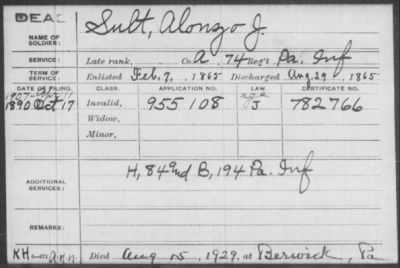 DEAD
NAME OF SOLDIER: Sult, Alonzo J.
SERVICE: Late rank, Co. A, 74 Reg't Pa. Inf
TERM OF SERVICE: Enlisted Feb. 7, 1865 Discharged Aug. 29, 1865
DATE OF FILING. CLASS. APPLICATION NO. LAW. CERTIFICATE NO.
1907-Apr 17 age
1890 Oct 17 Invalid, 955108 J 782766
Widow,
Minor,
ADDITIONAL SERVICES: H, 84 and B, 194 Pa. Inf
REMARKS:
KH Died Aug 15, 1929, at Berwick, Pa